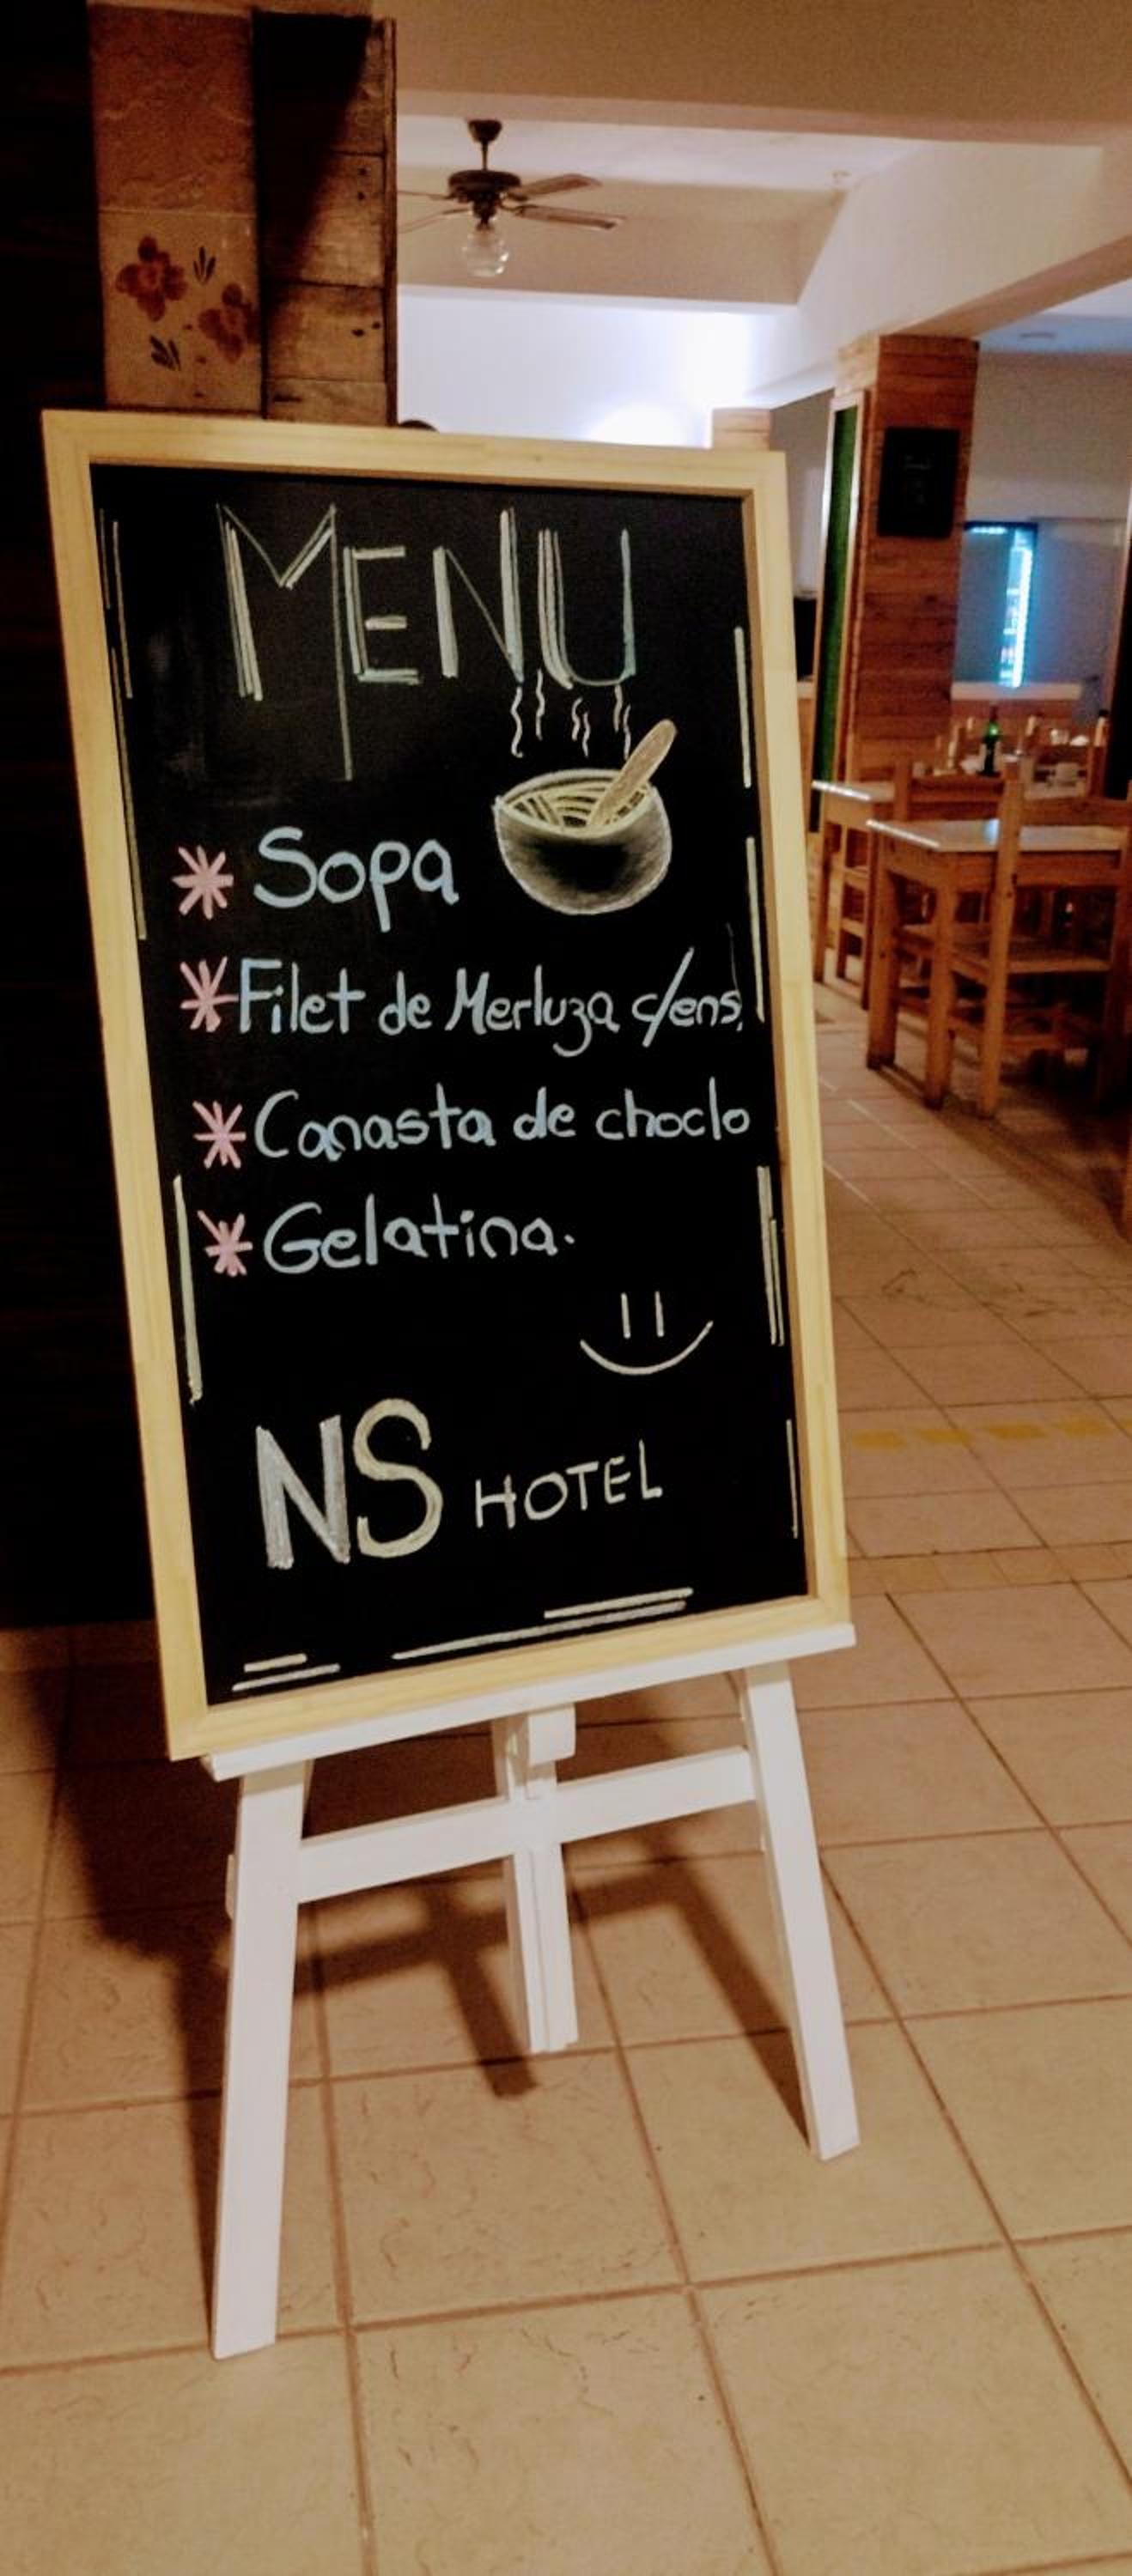 MENU
* Sopa
* Filet de Merluza c/ens.
* Canasta de choclo
* Gelatina.
NS HOTEL